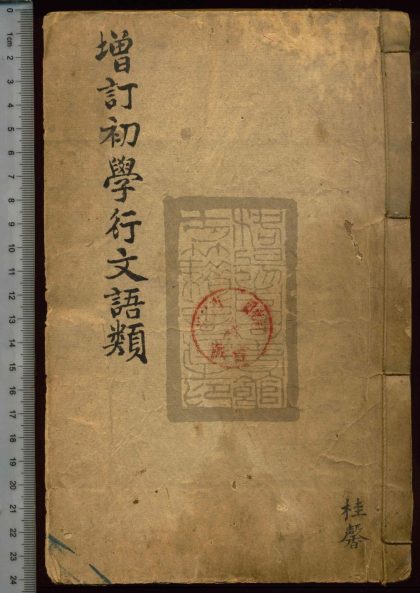 增訂初學行文語類
桂馨
0
1cm
2
3
4
5
6
7
8
9
10
11
12
13
14
15
16
17
18
19
20
21
22
23
24